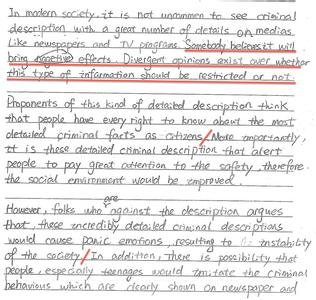 In modern society, it is not uncommon to see criminal
description with a great number of details on medias
like newspapers and TV programs. Somebody believes it will
bring negetive effects. Divergent opinions exist over whether
this type of information should be restricted or not.
Proponents of this kind of detailed description think
that people have every right to know about the most
detailed criminal facts as citizens. More importantly,
it is these detailed criminal description that alert
people to pay great attention to the safety, therefore
the social environment would be improved.
However, folks who are against the description argues
that, these incredibly detailed criminal descriptions
would cause panic emotions, resulting to instability
of the society. In addition, there is possibility that
people, especially teenages would imitate the criminal
behaviours which are clearly shown on newspaper and